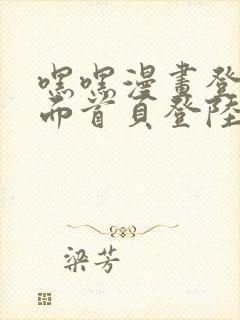 嘿嘿漫畫登
兩首頁登陸
梁芳